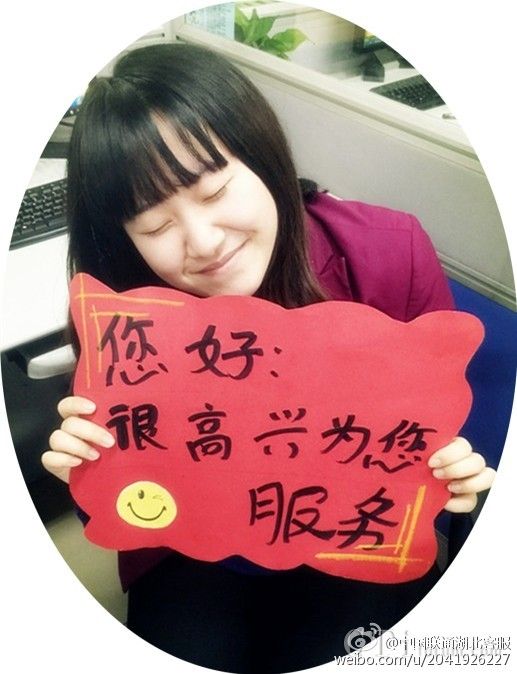 您好:
很高兴为您
服务
@中国联通湖北客服
weibo.com/u/2041926227